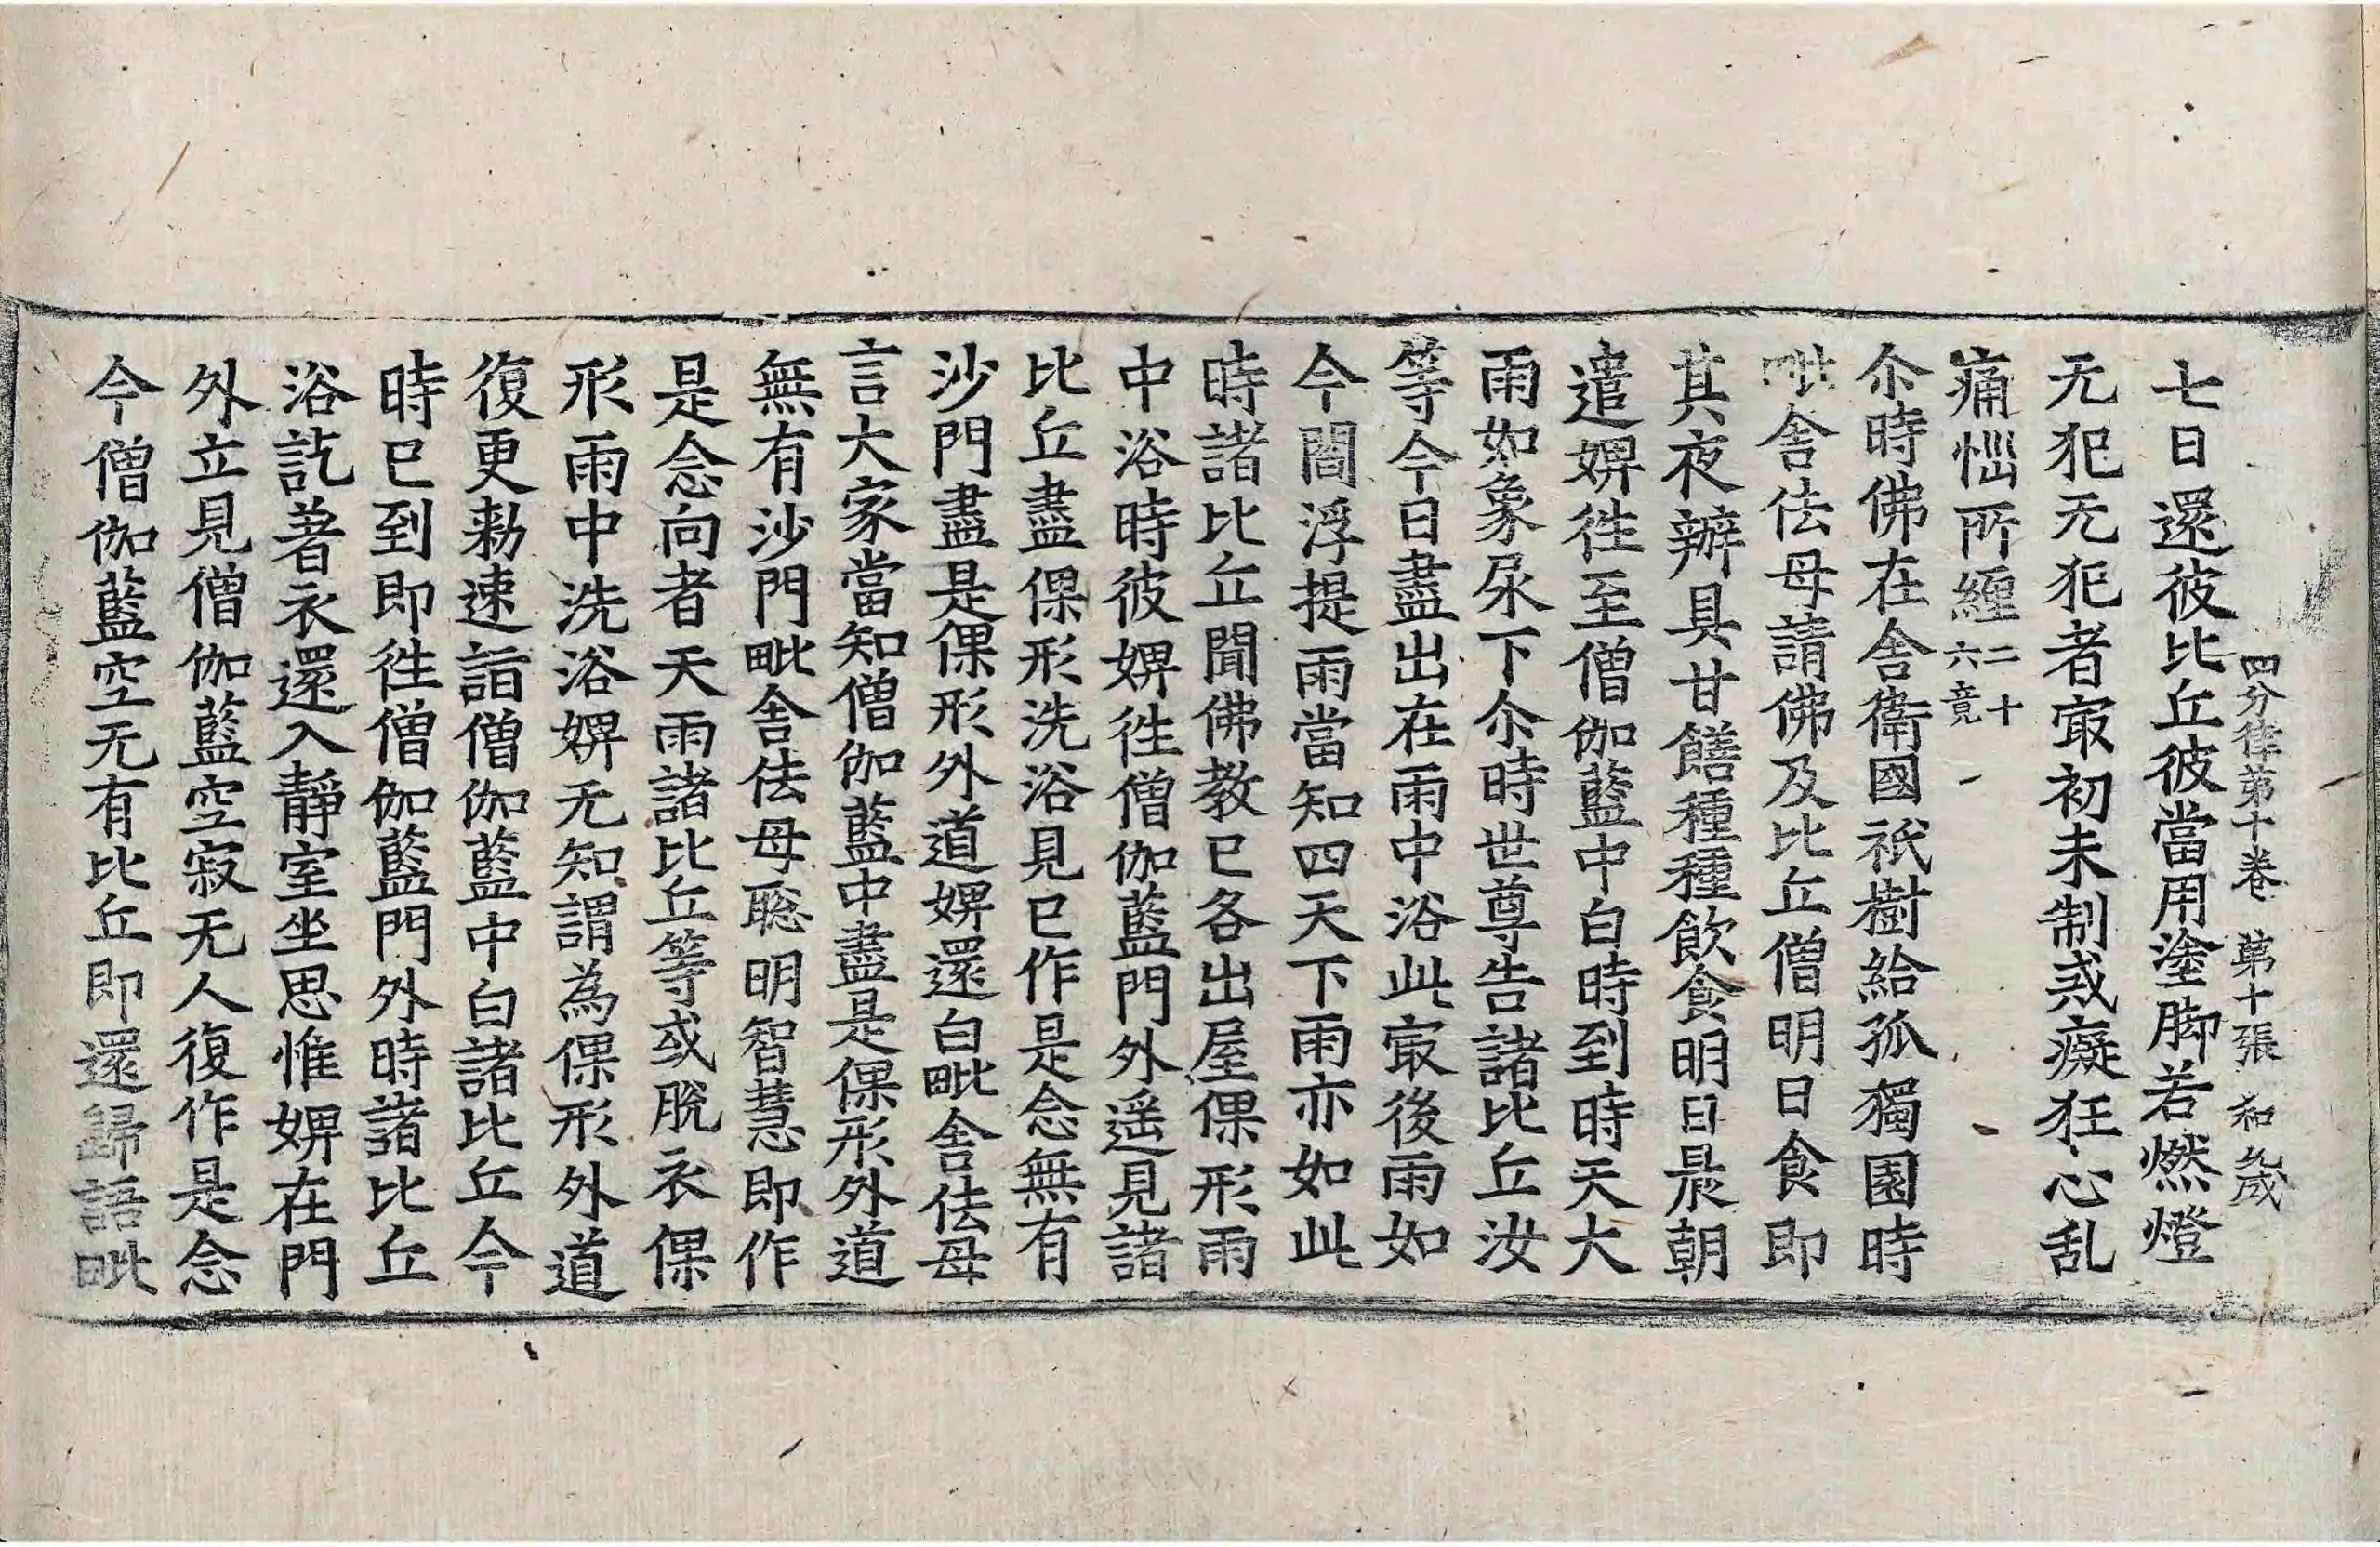 四分律第十卷 第十張 和 九歲
七日還彼比丘彼當用塗脚若燃燈
无犯无犯者冣初未制戒癡狂心乱
痛惱所纏二十六竟
尒時佛在舍衛國祇樹給孤獨園時
毗舍佉母請佛及比丘僧明日食即
其夜辦具甘饍種種飲食明日晨朝
遣婢徃至僧伽藍中白時到時天大
雨如象尿下尒時世尊告諸比丘汝
等今日盡出在雨中浴此冣後雨如
今閻浮提雨當知四天下雨亦如此
時諸比丘聞佛教已各出屋倮形雨
中浴時彼婢徃僧伽藍門外遥見諸
比丘盡倮形洗浴見已作是念無有
沙門盡是倮形外道婢還白毗舍佉母
言大家當知僧伽藍中盡是倮形外道
無有沙門毗舍佉母聡明智慧即作
是念向者天雨諸比丘等或脫衣倮
形雨中洗浴婢无知謂為倮形外道
復更勑速詣僧伽藍中白諸比丘今
時已到即徃僧伽藍門外時諸比丘
浴訖著衣還入靜室坐思惟婢在門
外立見僧伽藍空寂无人復作是念
今僧伽藍空无有比丘即還歸語毗